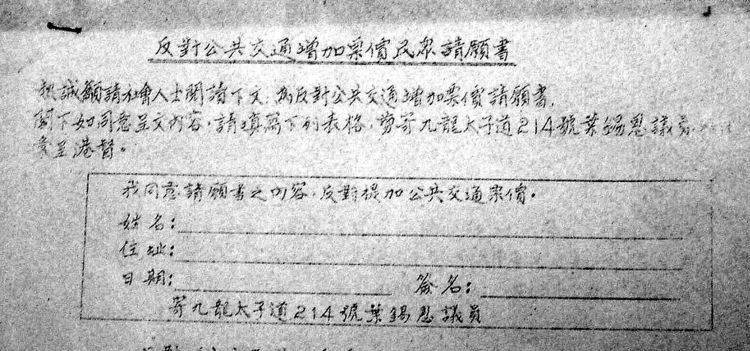 反對公共交通增加票價民眾請願書
熱誠籲請社會人士閱讀下文:為反對公共交通增加票價請願書,
閣下如同意呈文內容,請填寫下列表格,剪寄九龍太子道214號葉錫恩議員
彙呈港督。
我同意請願書之內容,反對增加公共交通票價。
姓名:
住址:
日期: 簽名:
寄九龍太子道214號葉錫恩議員